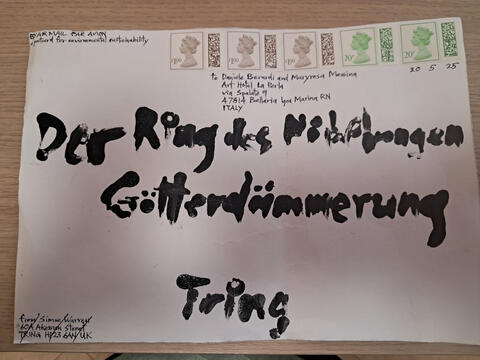 BY AIR MAIL PAR AVION
for environmental sustainability
£1.00 £1.00 £1.00 20p 20p
20 5 25
to Daniele Berardi and Maryrosa
Art Hotel La Perla
via Spalato 9
47814 Bellaria Igea Marina RN
ITALY
Der Ring des Nibelungen
Götterdämmerung
Tring
from/Simon/Warren
60A Akeman Street
TRING HP23 6AN/UK